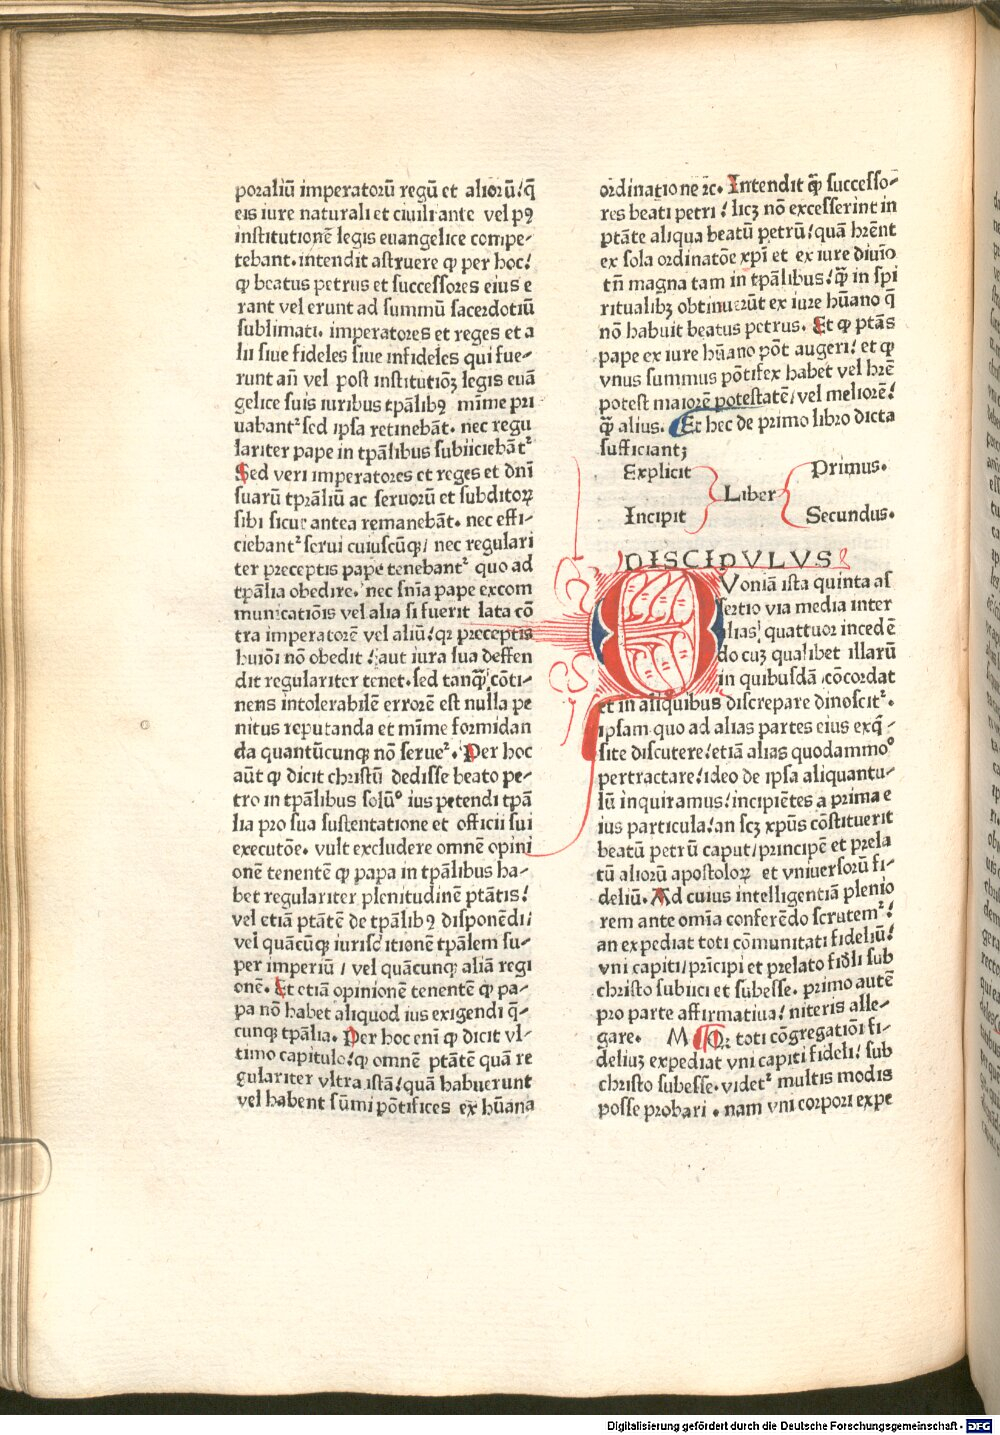 poraliū imperatorū regū et aliorū/q̄
eis iure naturali et ciuili ante vel pꝯ
institutionē legis euangelice compe-
tebant. intendit astruere ꝙ per hoc/
ꝙ beatus petrus et successores eius e
rant vel erunt ad summū sacerdotiū
sublimati. imperatores et reges et a
lii siue fideles siue infideles qui fue-
runt an̄ vel post institutiōꝫ legis euā
gelice suis iuribus tp̄alibꝯ mīme pri
uabantᷣ sed ipsa retinebāt. nec regu
lariter pape in tp̄alibus subiiciebātᷣ
Sed veri imperatores et reges et dn̄i
suarū tp̄aliū ac seruorū et subditoꝝ
sibi sicut antea remanebāt. nec effi-
ciebantᷣ serui cuiuscūqꝫ/ nec regulari
ter preceptis pape tenebantᷣ quo ad
tp̄alia obedire. nec sn̄ia pape excom
municatiōis vel alia si fuerit lata cō
tra imperatorē vel aliū/qꝛ preceptis
huiōi nō obedit/aut iura sua deffen
dit regulariter tenet. sed tanqꝫ̄ cōti-
nens intolerabilē errorē est nulla pe
nitus reputanda et mīme formidan
da quantūcunqꝫ nō serueᷣ. Per hoc
aūt ꝙ dicit christū dedisse beato pe-
tro in tp̄alibus solū° ius petendi tp̄a
lia pro sua sustentatione et officii sui
executōe. vult excludere omnē opini
onē tenentē ꝙ papa in tp̄alibus ha-
bet regulariter plenitudinē ptātis/
vel etiā ptātē de tp̄alibꝯ disponēdi/
vel quācūqꝫ iurisditionē tp̄alem su-
per imperiū / vel quācunqꝫ aliā regi
onē. Et etiā opinionē tenentē ꝙ pa-
pa nō habet aliquod ius exigendi q̄-
cunqꝫ tp̄alia. Per hoc eni ꝙ dicit vl-
timo capitulo/ꝙ omnē ptātē quā re
gulariter vltra istā/quā habuerunt
vel habent sūmi pōtifices ex hūana
ordinatione ⁊c. Intendit qꝫ̄ successo-
res beati petri / licꝫ nō excesserint in
ptāte aliqua beatū petrū/quā hr̄ent
ex sola ordinatōe xp̄i et ex iure diuīo
tn̄ magna tam in tp̄alibus/qꝫ̄ in spi
ritualibꝫ obtinuerūt ex iure hūano q̄
nō habuit beatus petrus. Et ꝙ ptās
pape ex iure hūano pōt augeri/ et ꝙ
vnus summus pōtifex habet vel hr̄e
potest maiorē potestatē/vel meliorē/
qꝫ̄ alius. Et hec de primo libro dicta
sufficiantꝫ
Explicit Liber Primus.
Incipit Secundus.
DISCIPVLVS
QVoniā ista quinta as
sertio via media inter
alias quattuor incedē
do cuꝫ qualibet illarū
in quibusdā cōcordat
et in aliquibus discrepare dinoscitᷣ.
ipsam quo ad alias partes eius exq̄-
site discutere/etiā alias quodammo°
pertractare/ideo de ipsa aliquantu-
lū inquiramus/incipiētes a prima e
ius particula/an scꝫ xp̄us cōstituerit
beatū petrū caput/principē et prela
tū aliorū apostoloꝝ et vniuersorū fi-
deliū. Ad cuius intelligentiā plenio
rem ante omīa conferēdo scrutemᷣ/
an expediat toti cōmunitati fideliū/
vni capiti/prīcipi et prelato fidēli sub
christo subiici et subesse. primo autē
pro parte affirmatiua/niteris alle-
gare. M Qꝛ toti cōgregatiōi fi-
deliuꝫ expediat vni capiti fideli/ sub
christo subesse. videtᷣ multis modis
posse probari . nam vni corpori expe
Digitalisierung gefördert durch die Deutsche Forschungsgemeinschaft - DFG